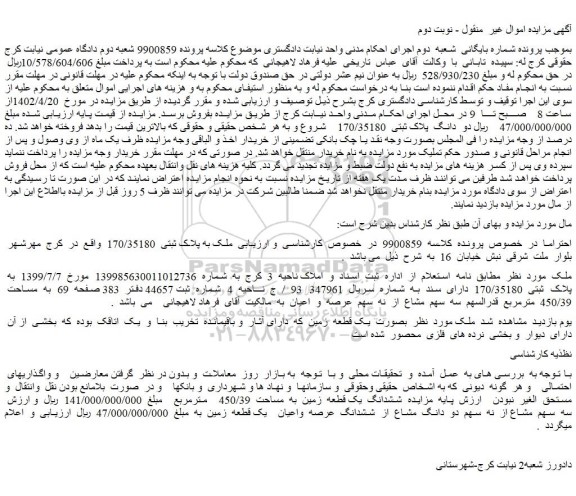 آگهی مزایده اموال غیر منقول - نوبت دوم
بموجب پرونده شماره بایگانی شعبه دوم اجرای احکام مدنی واحد نیابت دادگستری موضوع کلاسه پرونده 9900859 شعبه دوم دادگاه عمومی نیابت کرج
حقوقی کرج له: سپیده تابانی با وکالت آقای عباس تاریخی علیه فرهاد لاهیجانی که محکوم علیه محکوم است به پرداخت مبلغ 10/578/604/606ریال
در حق محکوم له و مبلغ 528/930/230 ریال به عنوان نیم عشر دولتی در حق صندوق دولت با توجه به اینکه محکوم علیه در مهلت قانونی در مهلت مقرر
نسبت به انجام مفاد حکم اقدام ننموده است بنا به درخواست محکوم له و به منظور استیفای محکوم به و هزینه های اجرایی اموال متعلق به محکوم علیه از
سوی این اجرا توقیف و توسط کارشناسی دادگستری کرج بشرح ذیل توصیف و ارزیابی شده و مقرر گردیده از طریق مزایده در مورخ 1402/4/20از
ساعت 8 صبح تا 9 در محل اجرای احکام مدنی واحد نیابت کرج از طریق مزایده بفروش برسد. مزایده از قیمت پایه ارزیابی شده مبلغ
47/000/000/000 ریال دو دانگ پلاک ثبتی 170/35180 شروع و به هر شخص حقیقی و حقوقی که بالاترین قیمت را بدهد فروخته خواهد شد. ده
درصد از وجه مزایده را فی المجلس بصورت وجه نقد یا چک بانکی تضمینی از خریدار اخذ و الباقی وجه مزایده ظرف یک ماه از وی وصول و پس از
انجام مراحل قانونی و صدور حکم تملیک مورد مزایده به نام خریدار منتقل خواهد شد. در صورتی که در مهلت مقرر خریدار وجه مزایده را پرداخت ننماید
سپرده وی پس از کسر هزینه های مزایده به نفع دولت ضبط و مزایده تجدید می گردد. کلیه هزینه های نقل و انتقال بعهده محکوم علیه است که از محل فروش
پرداخت خواهد شد طرفین می توانند ظرف مدت یک هفته از تاریخ مزایده نسبت به نحوه انجام مزایده اعتراض نمایند که در این صورت تا رسیدگی به
اعتراض از سوی دادگاه مورد مزایده بنام خریدار منتقل نخواهد شد ضمنا طالبین شرکت در مزایده می توانند ظرف 5 روز قبل از مزایده بااطلاع این اجرا
از مال مورد مزایده بازدید نمایند.
مال مورد مزایده و بهای آن طبق نظر کارشناس بدین شرح است:
احتراما در خصوص پرونده کلاسه 9900859 در خصوص کارشناسی و ارزیابی ملک به پلاک ثبتی 170/35180 واقع در کرج مهرشهر
بلوار ملت شرقی نبش خیابان 16 به شرح ذیل می باشد
ملک مورد نظر مطابق نامه استعلام از اداره ثبت اسناد و املاک ناحیه 3 کرج به شماره 139985630011012736 مورخ 1399/7/7 به
پلاک ثبتی 170/35180 دارای سند به شماره سریال 347961 93 / ج ناحیه 4 شماره ثبت 44657 دفتر 383 صفحه 69 به مساحت
450/39 مترمربع قدرالسهم سه سهم مشاع از نه سهم عرصه و اعیان به مالکیت آقای فرهاد لاهیجانی می باشد .
یوم بازدید مشاهده شد ملک مورد نظر بصورت یک قطعه زمین که دارای آثار و باقیمانده تخریب بنا و یک اتاقک بوده که بخشی از آن
دارای دیوار و بخشی نرده های فلزی محصور شده است
نظدیه کارشناسی
با توجه به بررسی های به عمل آمده و تحقیقات محلی و با توجه به بازار روز معاملات و بدون در نظر گرفتن معارضین و واگذاریهای
احتمالی و هر گونه دیونی که به اشخاص حقیقی وحقوقی و سازمانها و نهاد ها و شهرداری و بانکها و در صورت بلامانع بودن نقل وانتقال و
مستحق الغیر نبودن ارزش پایه مزایده ششدانگ یک قطعه زمین به مساحت 450/39 مترمربع مبلغ 141/000/000/000 ریال و ارزش
سه سهم مشاع از نه سهم دو دانگ مشاع از ششدانگ عرصه واعیان یک قطعه زمین به مبلغ 47/000/000/000 ریال ارزیابی و اعلام
میگردد .
دادورز شعبه2 نیابت کرج-شهرستانی